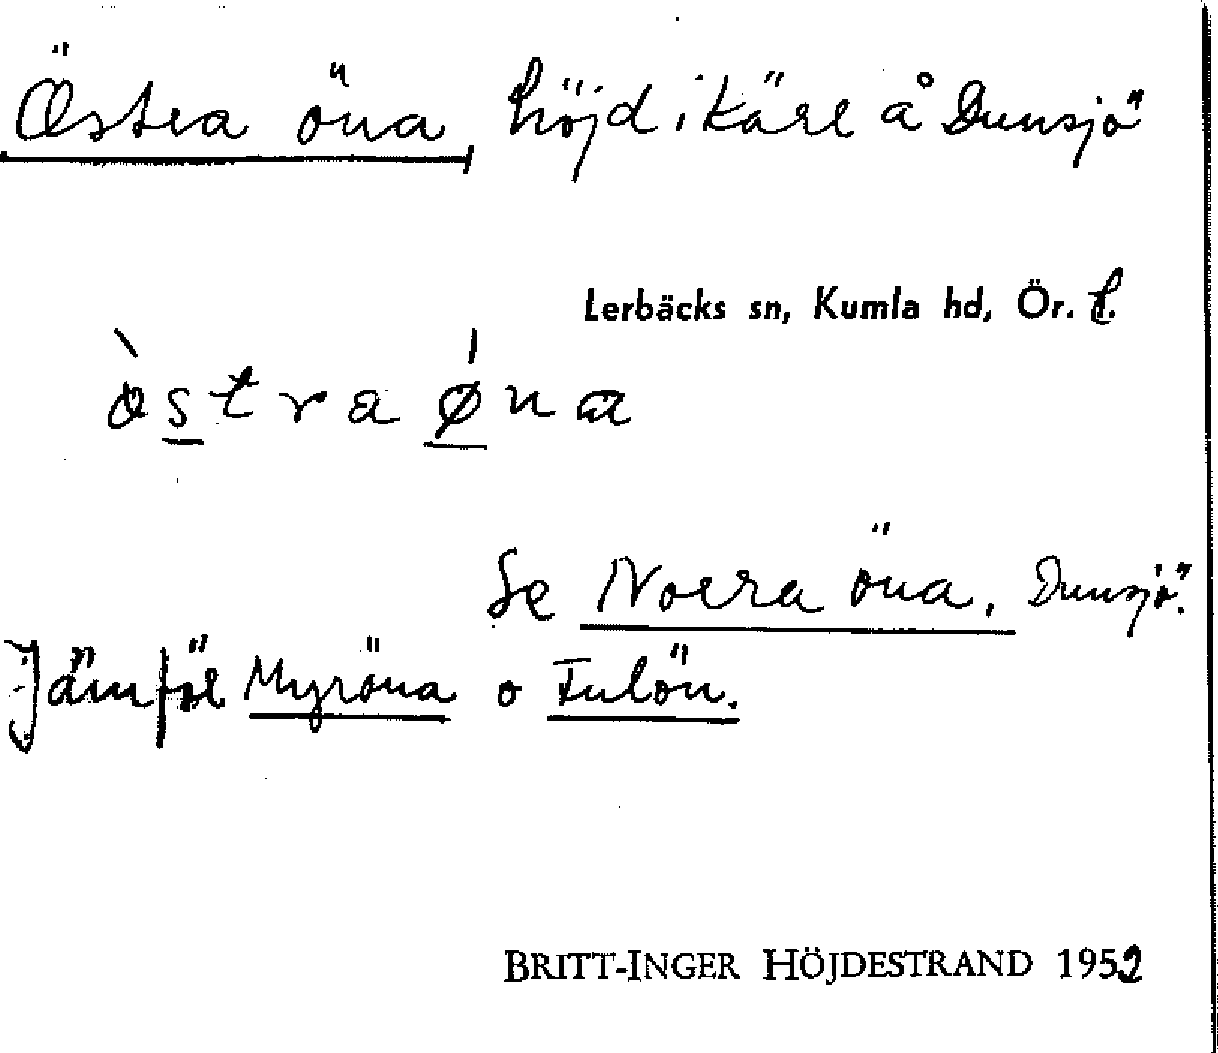 Östra öna höjd i kärr å Dunsjö
Lerbäcks sn, Kumla hd, Ör. l.
òstra øna
Se Norra öna, Dunsjö.
Jämför Myröna o Fulön.
BRITT-INGER HÖJDESTRAND 1952